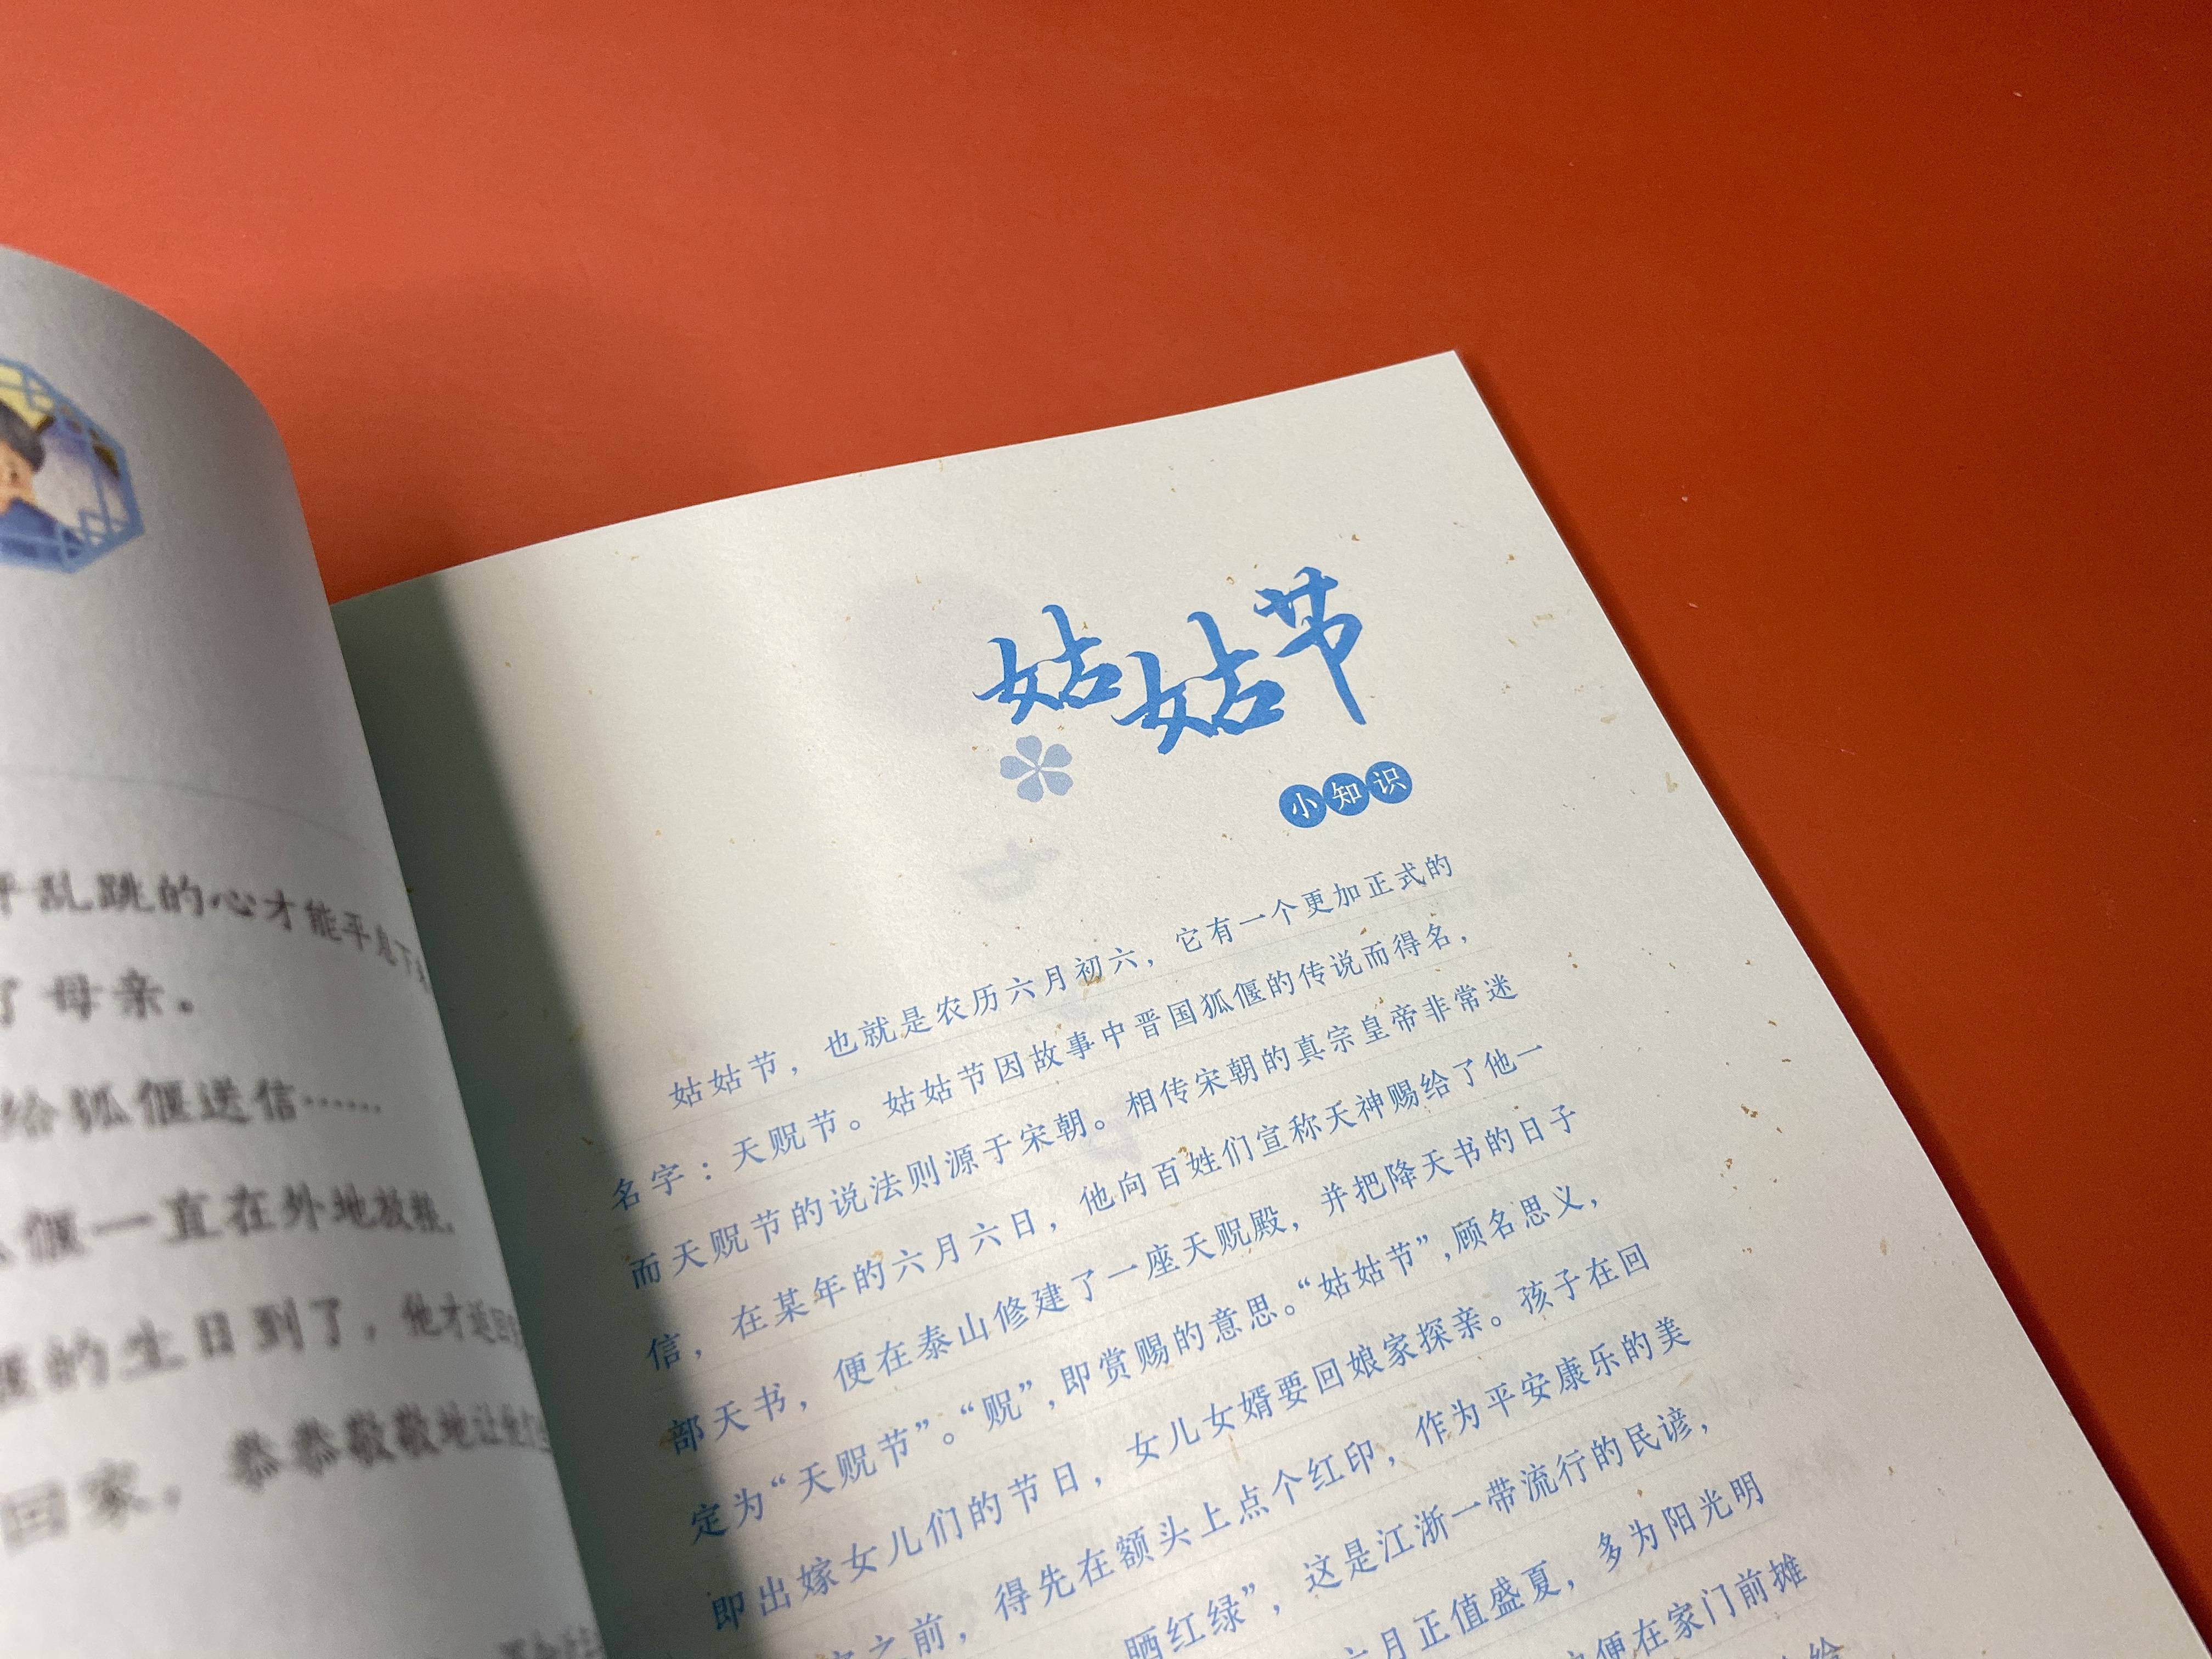 乱跳的心才能平息下
了母亲。
给狐偃送信……
偃一直在外地放粮,
的生日到了,他才返回
回家,恭恭敬敬地让他
姑姑节
小知识
姑姑节,也就是农历六月初六,它有一个更加正式的
名字:天贶节。姑姑节因故事中晋国狐偃的传说而得名,
而天贶节的说法则源于宋朝。相传宋朝的真宗皇帝非常迷
信,在某年的六月六日,他向百姓们宣称天神赐给了他一
部天书,便在泰山修建了一座天贶殿,并把降天书的日子
定为“天贶节”。“贶”,即赏赐的意思。“姑姑节”,顾名思义,
即出嫁女儿们的节日,女儿女婿要回娘家探亲。孩子在回
之前,得先在额头上点个红印,作为平安康乐的美
晒红绿”,这是江浙一带流行的民谚,
六月正值盛夏,多为阳光明
便在家门前摊
给